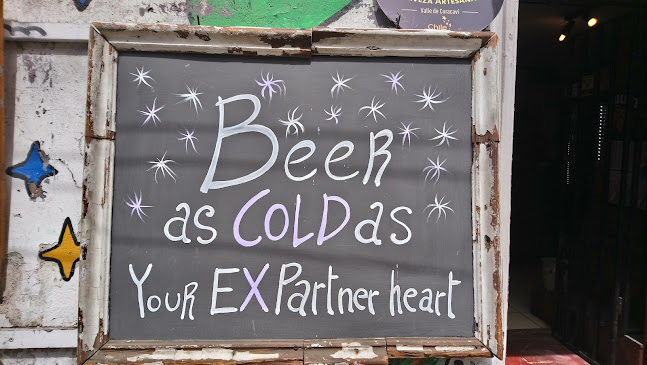 CERVEZA ARTESANAL
Valle de Curacaví
Chile
Beer
as COLD as
Your EX Partner heart